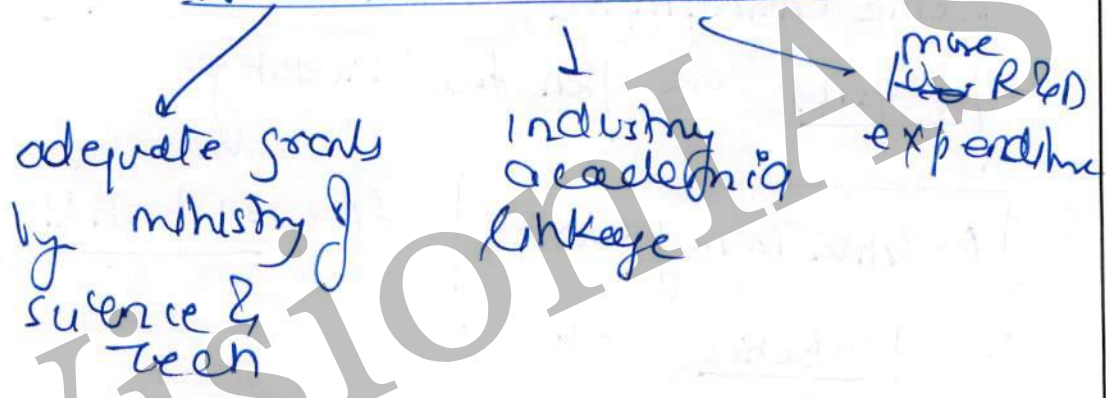 adequate grants
by ministry of
science &
Tech
industry
academia
linkage
more
R&D
expenditure
VisionIAS